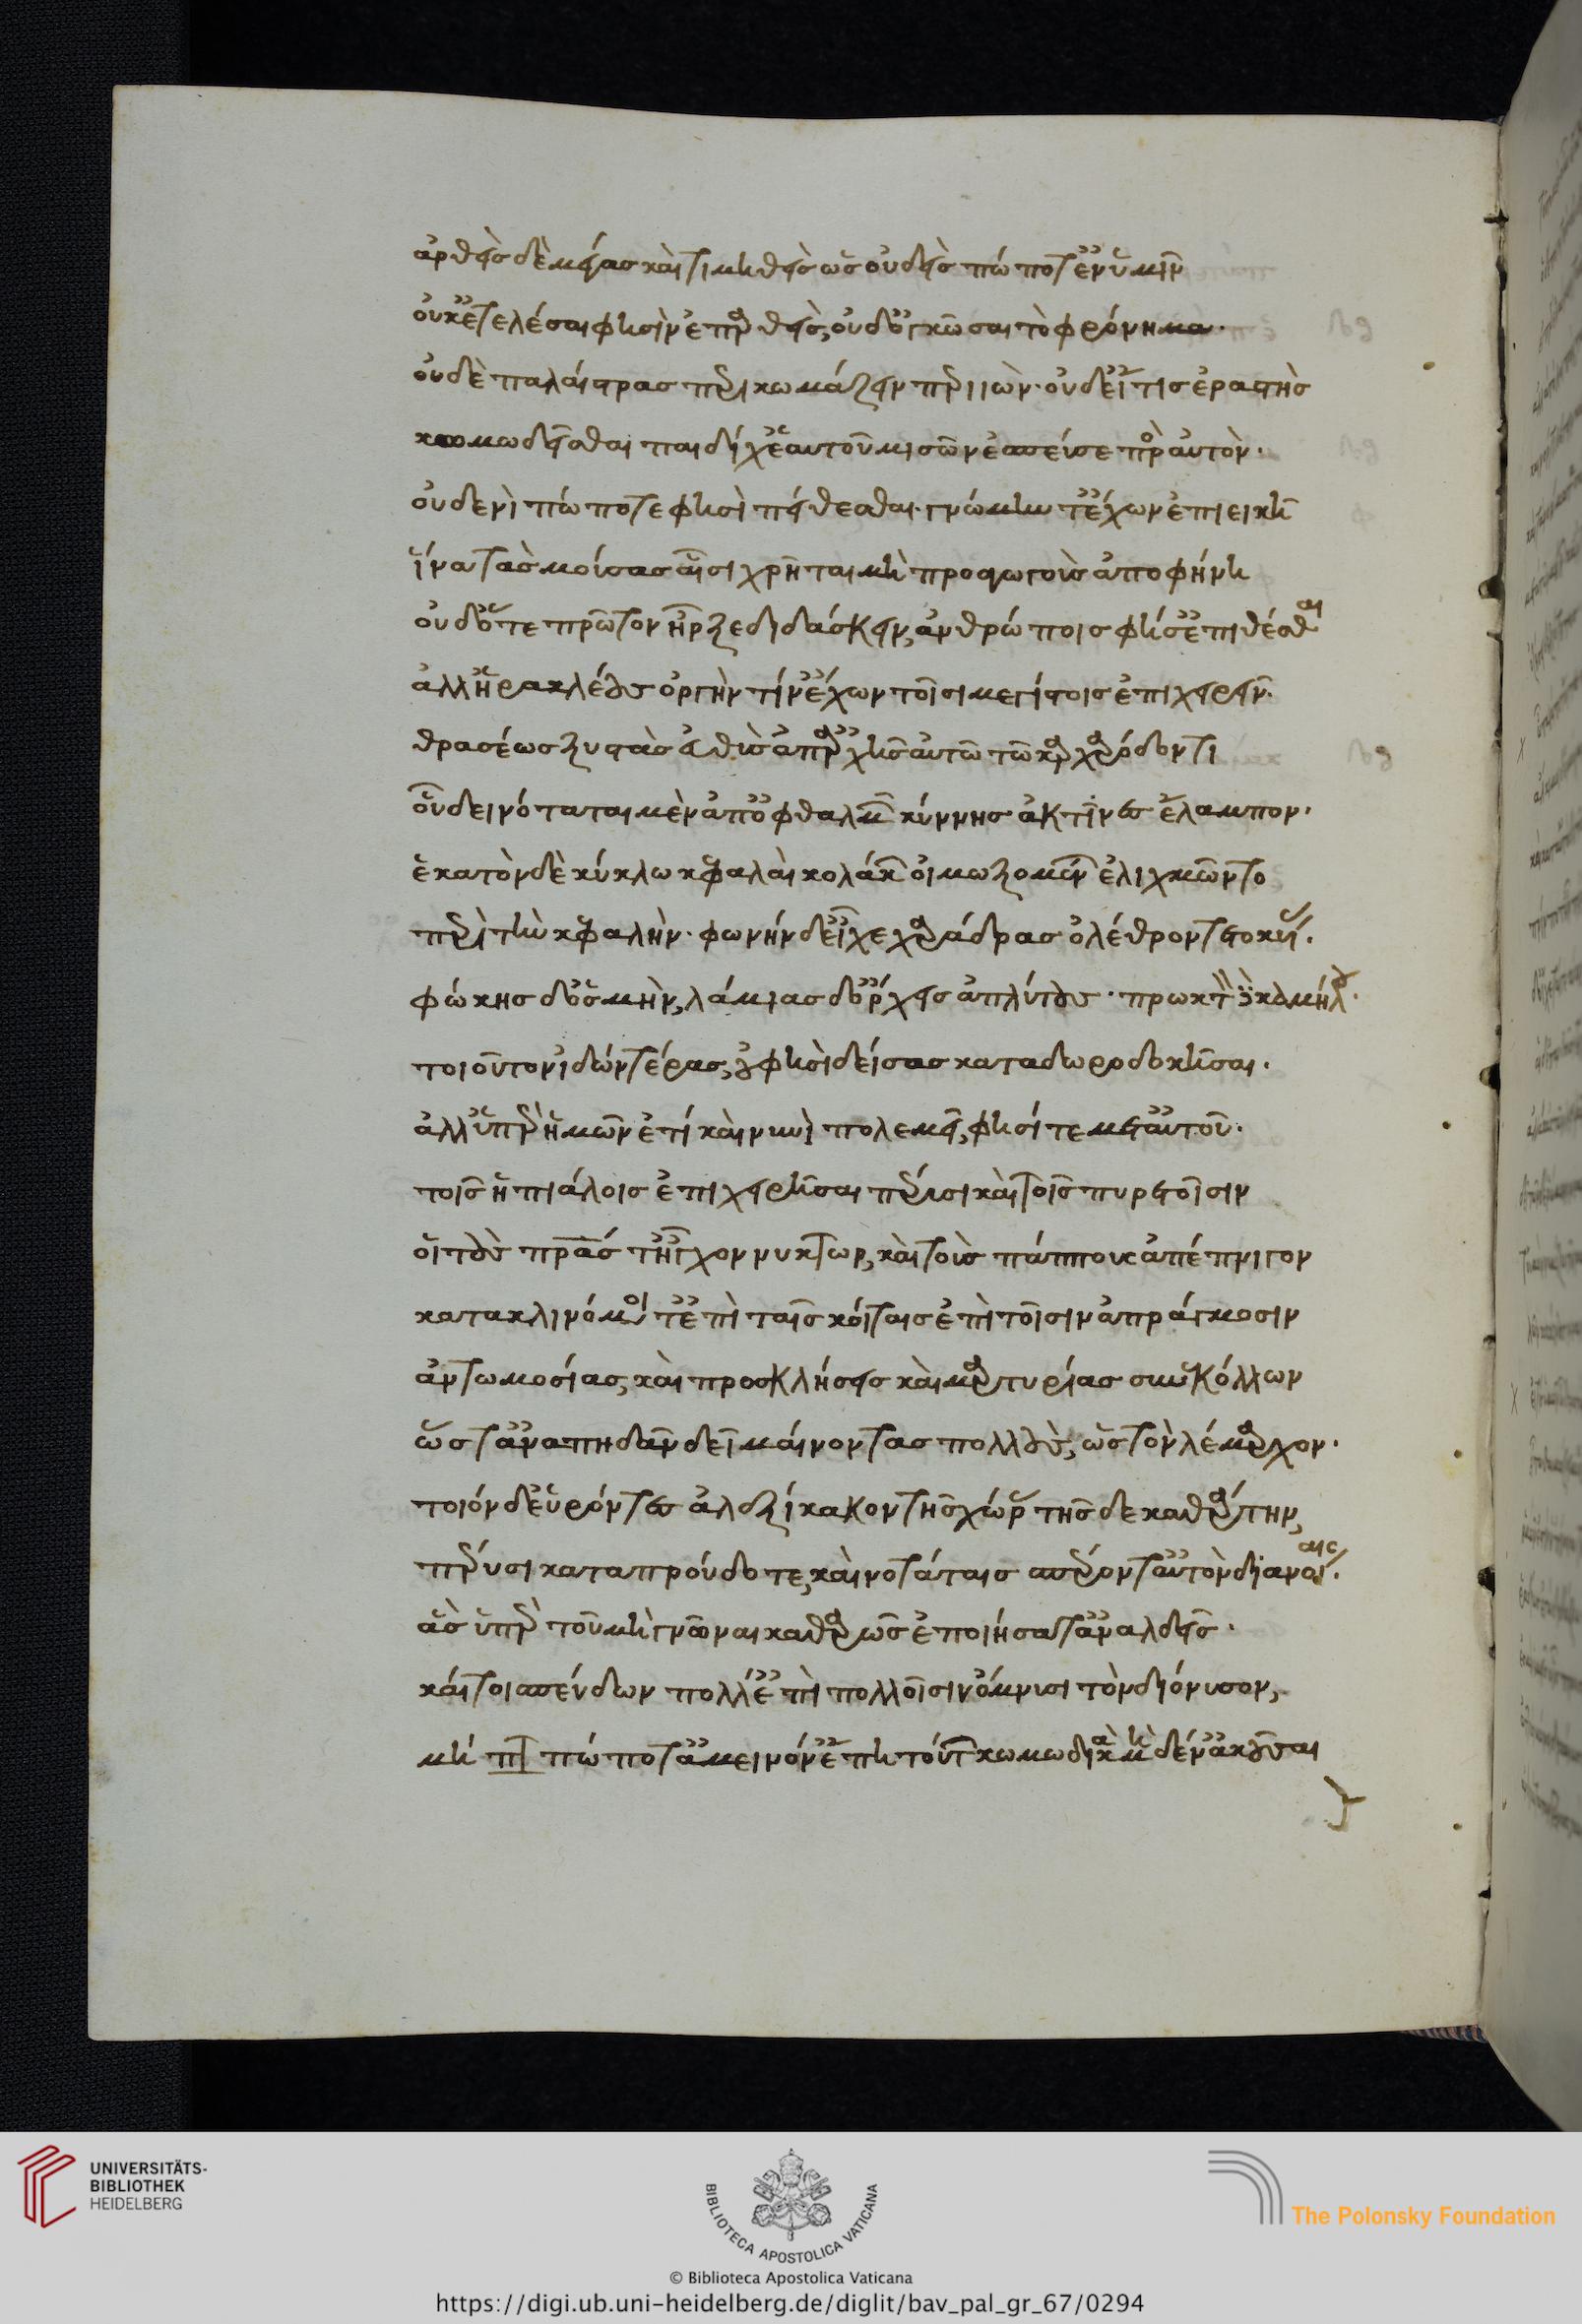 ἀρθεὶς δὲ μέγας καὶ τιμηθεὶς ὡς οὐδεὶς πώποτ' ἐν ὑμῖν
οὐκ ἐκτελέσαι φησὶν ἐπαρθεὶς, οὐδ' ὀγκῶσαι τὸ φρόνημα.
οὐδὲ παλαίστρας περικωμάζειν περιιών. οὐδ' εἴ τις ἐραστὴς
κωμωδεῖσθαι παιδίχ' ἑαυτοῦ μισῶν ἔσπευσε πρὸς αὐτόν.
οὐδενὶ πώποτέ φησι πείθεσθαι. γνώμην τιν' ἔχων ἐπιεικῆ
ἵνα τὰς μούσας αἷσι χρῆται μὴ προαγωγοὺς ἀποφήνη
οὐδ' ὅτε πρῶτον ἦρξε διδάσκειν, ἀνθρώποις φησ' ἐπιθέσθαι
ἀλλ' ἡρακλέους ὀργήν τιν' ἔχων τοῖσι μεγίστοις ἐπιχειρεῖν.
θρασέως ξυστὰς εὐθὺς ἀπαρχῆς αὐτῶ τῶ καρχαρόδοντι
οὗ δεινόταται μὲν ἀπ' ὀφθαλμῶν κύννης ἀκτῖνες ἔλαμπον.
ἑκατὸν δὲ κύκλω κεφαλαὶ κολάκων οἰμωξομένων ἐλιχμῶντο
περὶ τὴν κεφαλήν. φωνὴν δ' εἶχε χαράδρας ὄλεθρον τετοκυίας.
φώκης δ' ὀσμὴν, λαμίας δ' ὄρχεις ἀπλύτους. πρωκτὸν δὲ καμήλου.
τοιοῦτον ἰδὼν τέρας, οὔ φησι δείσας καταδωροδοκῆσαι.
ἀλλ' ὑπὲρ ἡμῶν ἔτι καὶ νυνὶ πολεμεῖ, φησί τε μετ' αὐτοῦ.
τοῖς ἠπιάλοις ἐπιχειρῆσαι πέρυσι καὶ τοῖς πυρετοῖσιν
οἳ τοὺς πατέρας τ' ἦγχον νύκτωρ, καὶ τοὺς πάππους ἀπέπνιγον
κατακλινόμενοί τ' ἐπὶ ταῖς κοίταις ἐπὶ τοῖσιν ἀπράγμοσιν
ἀντωμοσίας, καὶ προσκλήσεις καὶ μαρτυρίας συνεκόλλων
ὥστ' ἀναπηδᾶν δειμαίνοντας πολλοὺς, ὡς τὸν πολέμαρχον.
τοιόνδ' εὑρόντες ἀλεξίκακον τῆς χώρας τῆσδε καθαρτὴν,
πέρυσι καταπρούδοτε, καινοτάταις σπείροντ' αὐτὸν διανοίαις.
ἃς ὑπὸ τοῦ μὴ γνῶναι καθαρῶς ἐποιήσατ' ἀναλδεῖς.
καίτοι σπένδων πόλλ' ἐπὶ πολλοῖσιν ὄμνυσι τὸν διόνυσον,
μὴ πώποτ' ἀμείνον' ἔπη τούτων κωμωδικὰ μηδέν' ἀκοῦσαι
UNIVERSITÄTS-
BIBLIOTHEK
HEIDELBERG
BIBLIOTECA APOSTOLICA VATICANA
The Polonsky Foundation
© Biblioteca Apostolica Vaticana
https://digi.ub.uni-heidelberg.de/diglit/bav_pal_gr_67/0294